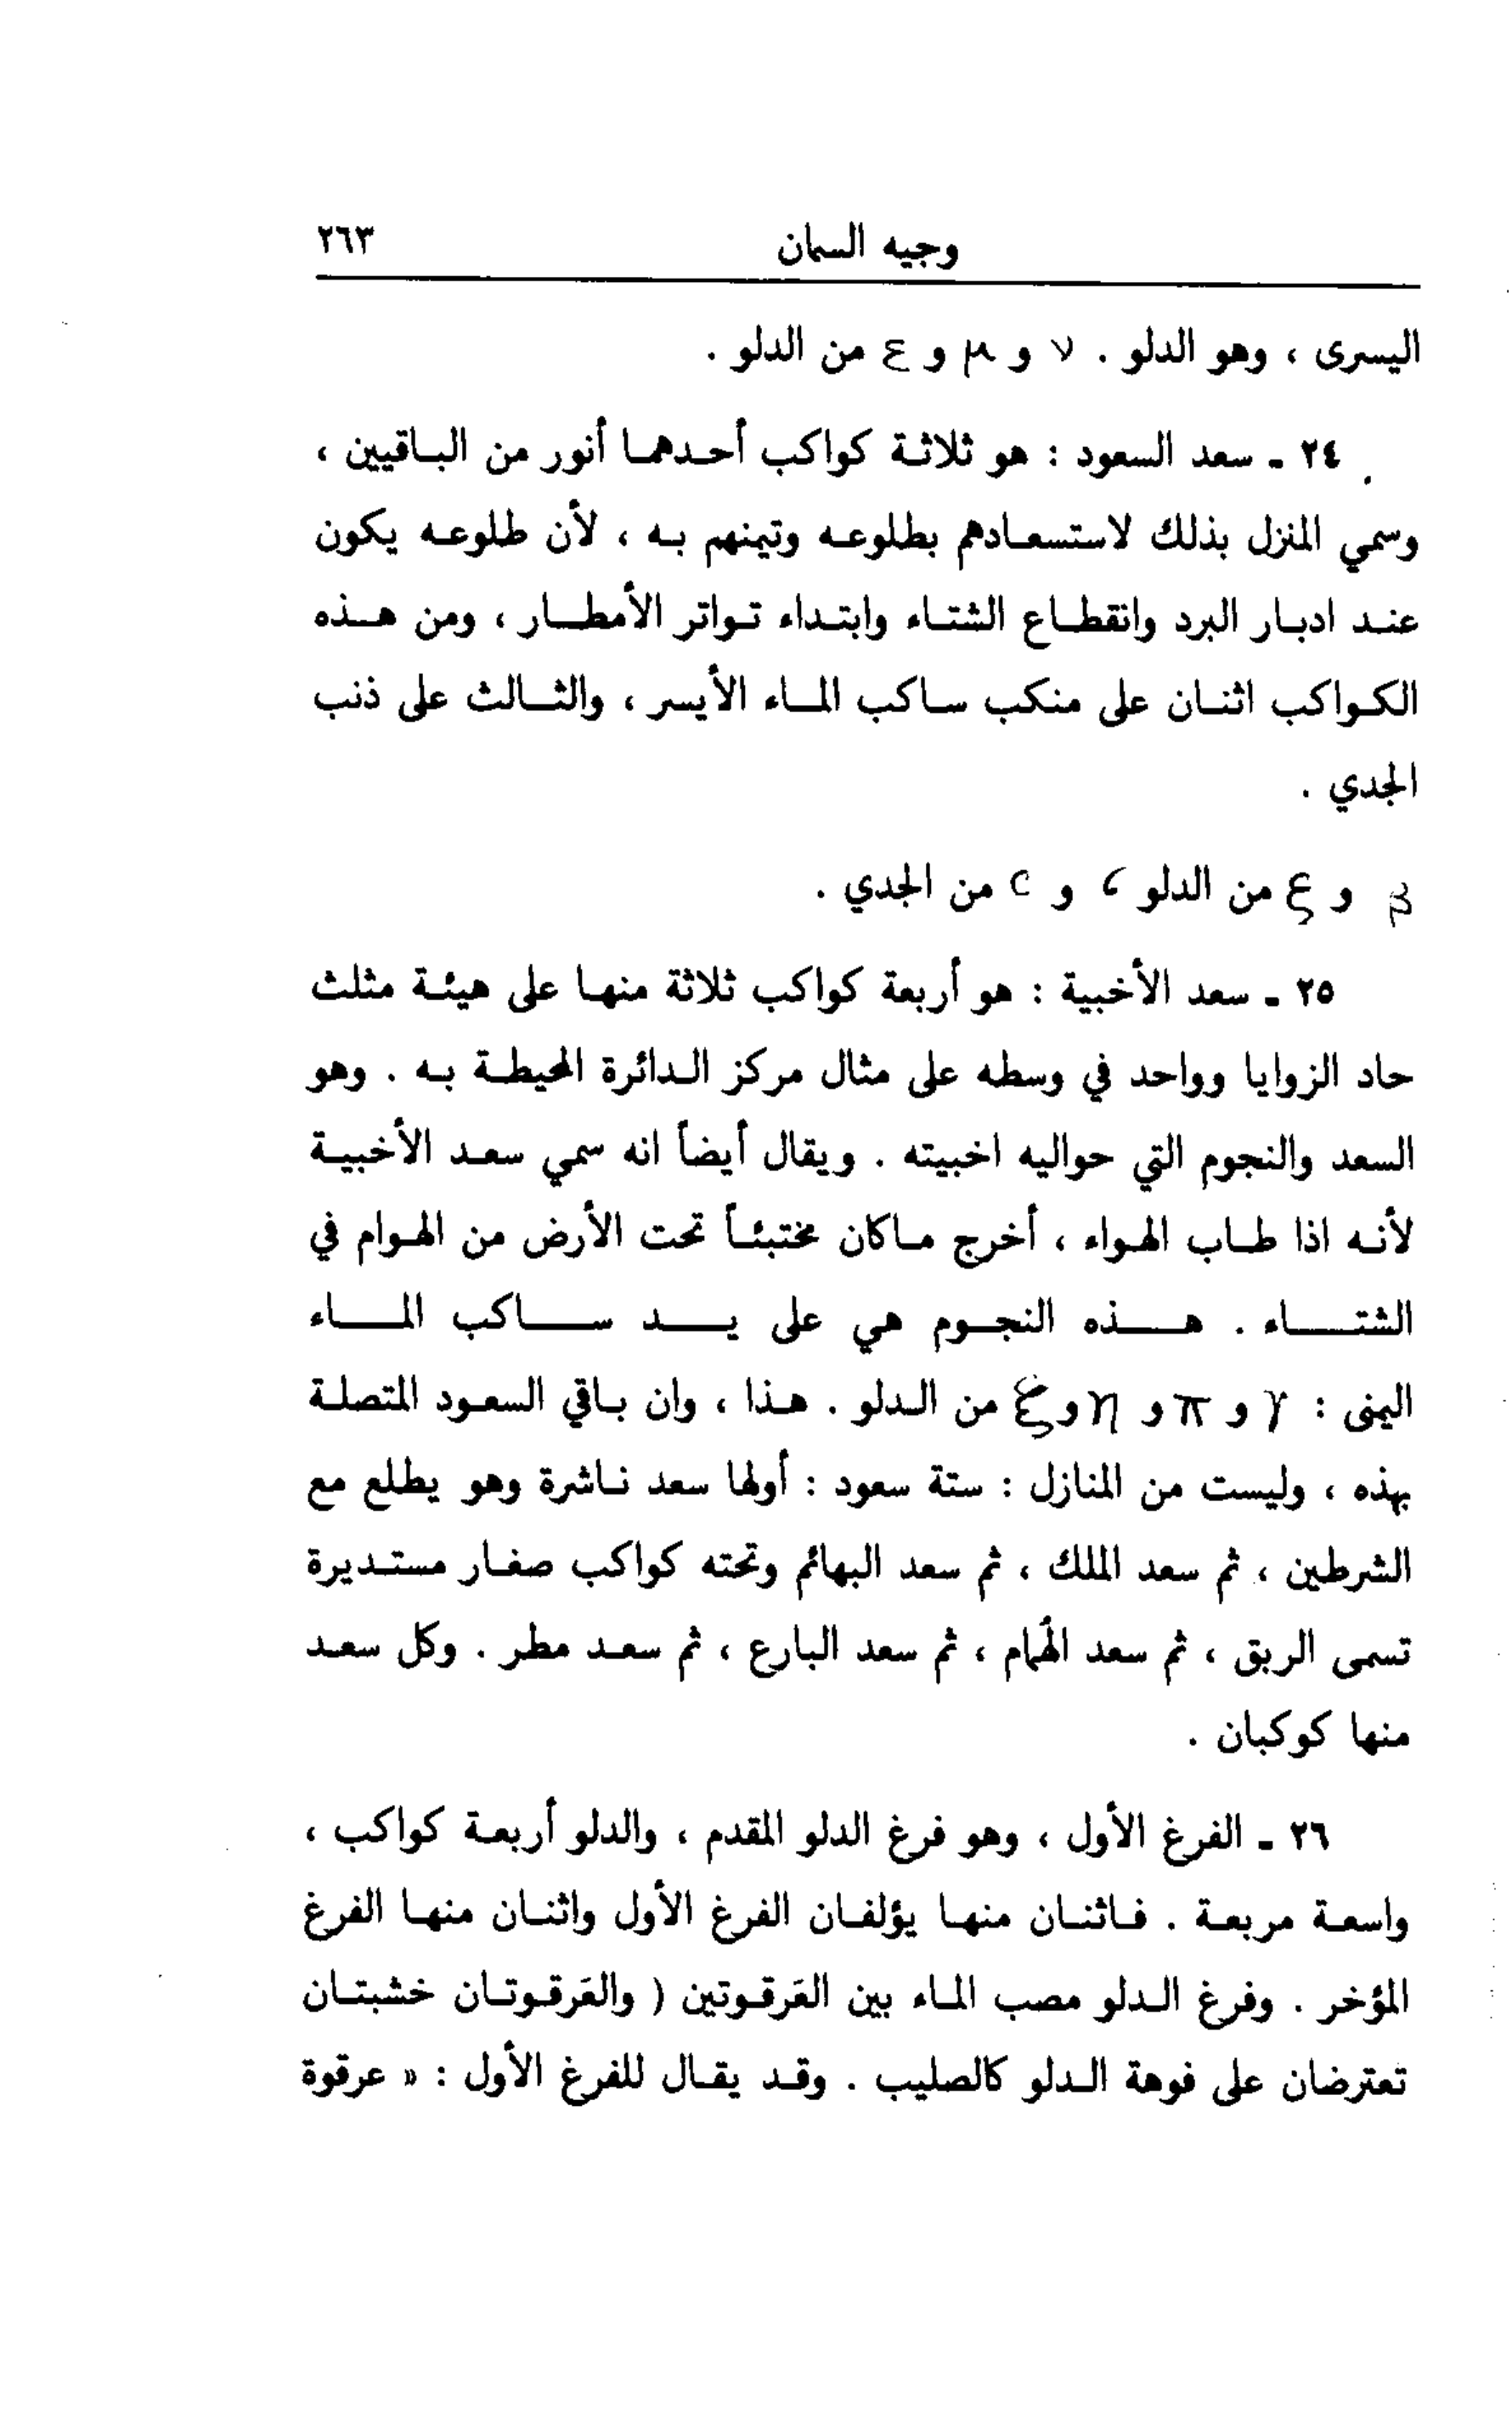 وجيه السمان ٢٦٣
اليسرى ، وهو الدلو . ν و μ و ε من الدلو .
٢٤ - سعد السعود : هو ثلاثة كواكب أحدهما أنور من الباقيين ،
وسمي المنزل بذلك لاستسعادهم بطلوعه وتيمنهم به ، لأن طلوعه يكون
عند ادبار البرد وانقطاع الشتاء وابتداء تواتر الأمطار ، ومن هذه
الكواكب اثنان على منكب ساكب الماء الأيسر ، والثالث على ذنب
الجدي .
β و ξ من الدلو ، و c من الجدي .
٢٥ - سعد الأخبية : هو أربعة كواكب ثلاثة منها على هيئة مثلث
حاد الزوايا وواحد في وسطه على مثال مركز الدائرة المحيطة به . وهو
السعد والنجوم التي حواليه اخبيته . ويقال أيضاً انه سمي سعد الأخبية
لأنه اذا طاب الهواء ، أخرج ماكان مختبئاً تحت الأرض من الهوام في
الشتاء . هذه النجوم هي على يد ساكب الماء
اليمنى : γ و π و η و ξ من الدلو . هذا ، وان باقي السعود المتصلة
بهذه ، وليست من المنازل : ستة سعود : أولها سعد ناشرة وهو يطلع مع
الشرطين ، ثم سعد الملك ، ثم سعد البهائم وتحته كواكب صغار مستديرة
تسمى الربق ، ثم سعد الهُمام ، ثم سعد البارع ، ثم سعد مطر . وكل سعد
منها كوكبان .
٢٦ - الفرغ الأول ، وهو فرغ الدلو المقدم ، والدلو أربعة كواكب ،
واسعة مربعة . فاثنان منها يؤلفان الفرغ الأول واثنان منها الفرغ
المؤخر . وفرغ الدلو مصب الماء بين العَرقوتين ( والعَرقوتان خشبتان
تعترضان على فوهة الدلو كالصليب . وقد يقال للفرغ الأول : « عرقوة